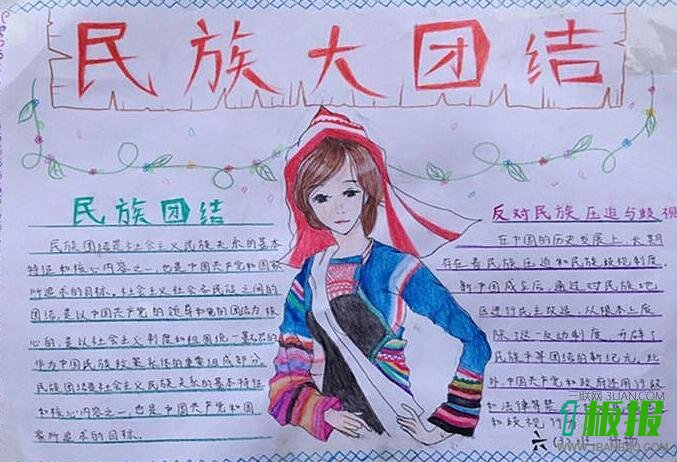 民族大团结
民族团结
民族团结是社会主义民族关系的基本
特征和核心内容之一,也是中国共产党和国家
所追求的目标。社会主义社会各民族之间的
团结,是以中国共产党的领导和党的团结为核
心的,是以社会主义制度和祖国统一为
中国民族政策总体的重要组成部分。
民族团结是社会主义民族关系的基本特征
和核心内容之一,也是中国共产党和国
家所追求的目标。
反对民族压迫与歧视
在中国的历史发展上,长期
存在着民族压迫和民族歧视制度。
新中国成立后,通过对民族地
区进行民主改造,从根本上废
除了这一反动制度,开辟了
民族平等团结的新纪元。此
外,中国共产党和政府还用行政
和法律等
和歧视
三联网 3LIAN.COM
板报
WWW.1BANBAO.COM